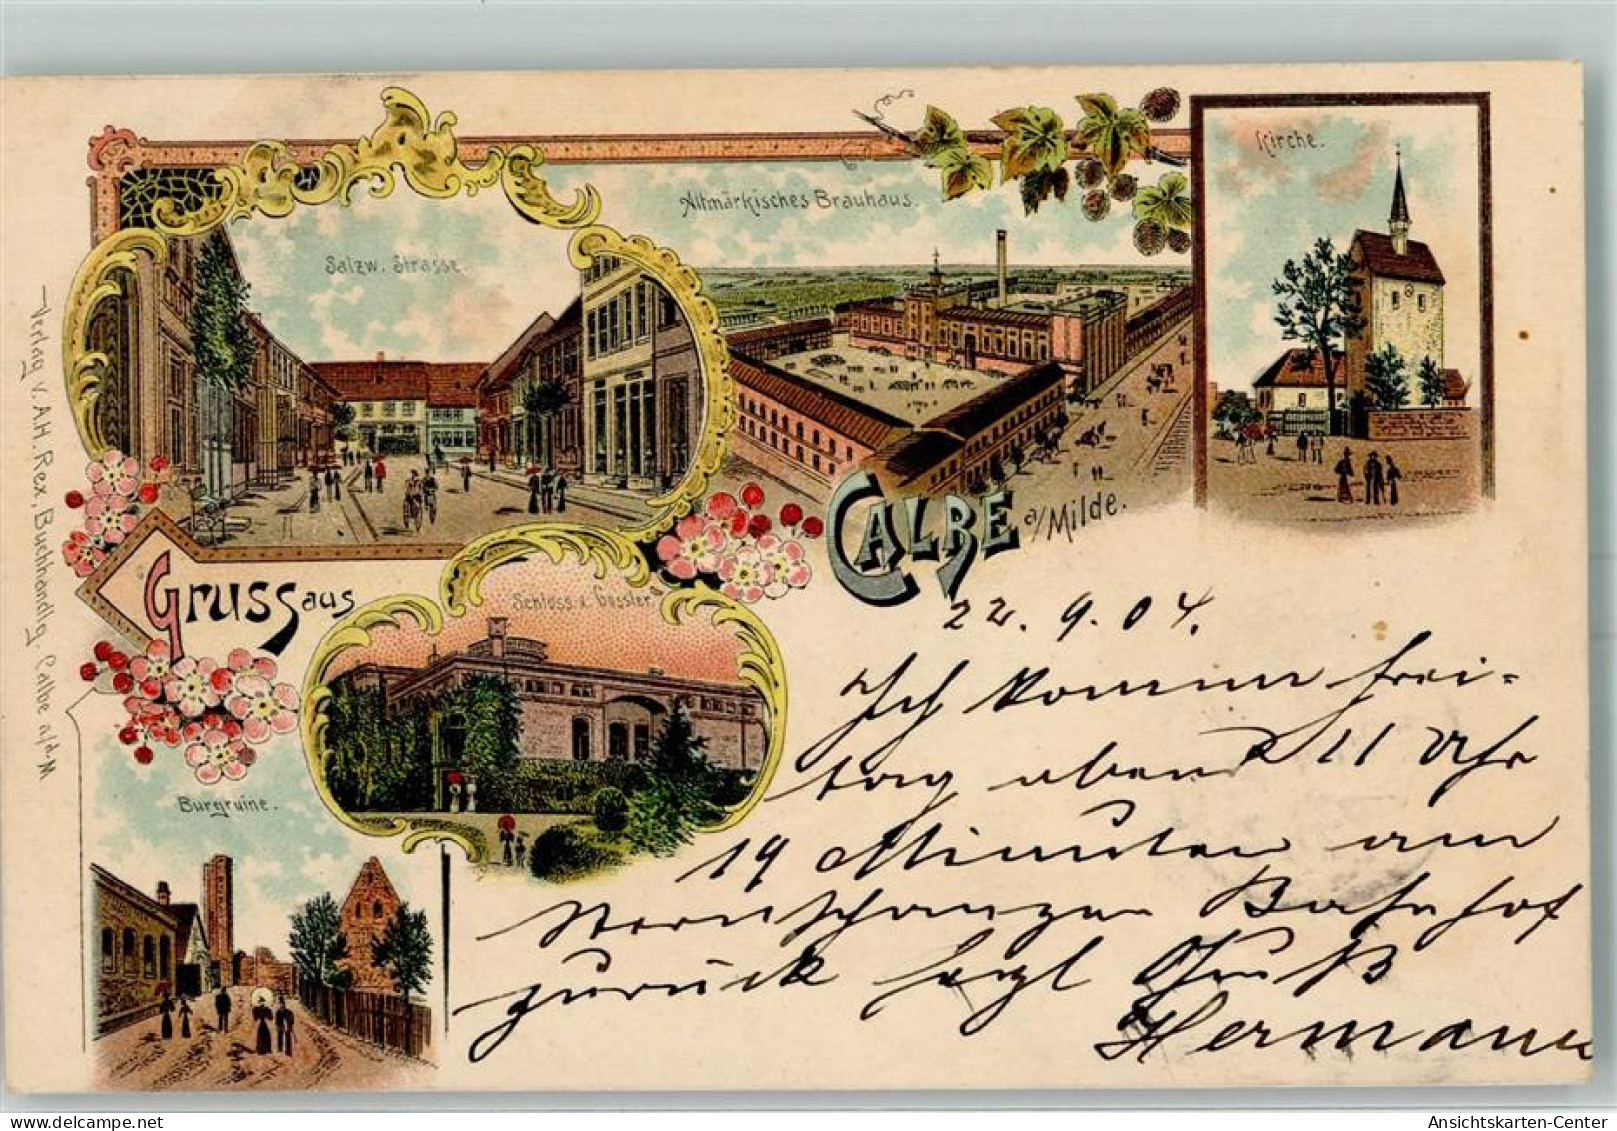 Kirche.
Altmärkisches Brauhaus.
Salzw. Strasse
CALBE a/Milde.
GRUSS aus
Schloss v. Gossler.
Burgruine.
Verlag v. AH. Rex, Buchhandlg. Calbe a/d. M
22. 9. 04.
Ich komme frei-
tag abend 11 Uhr
19 Minuten am
Bahnhof
zurück Gruß
Hermann
Ansichtskarten-Center